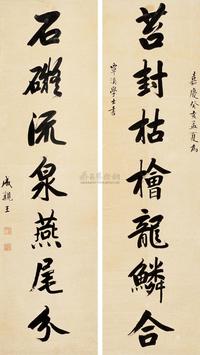 嘉慶癸亥孟夏為
苔封枯檜龍鱗合
學士書
石礙流泉燕尾分
成親王